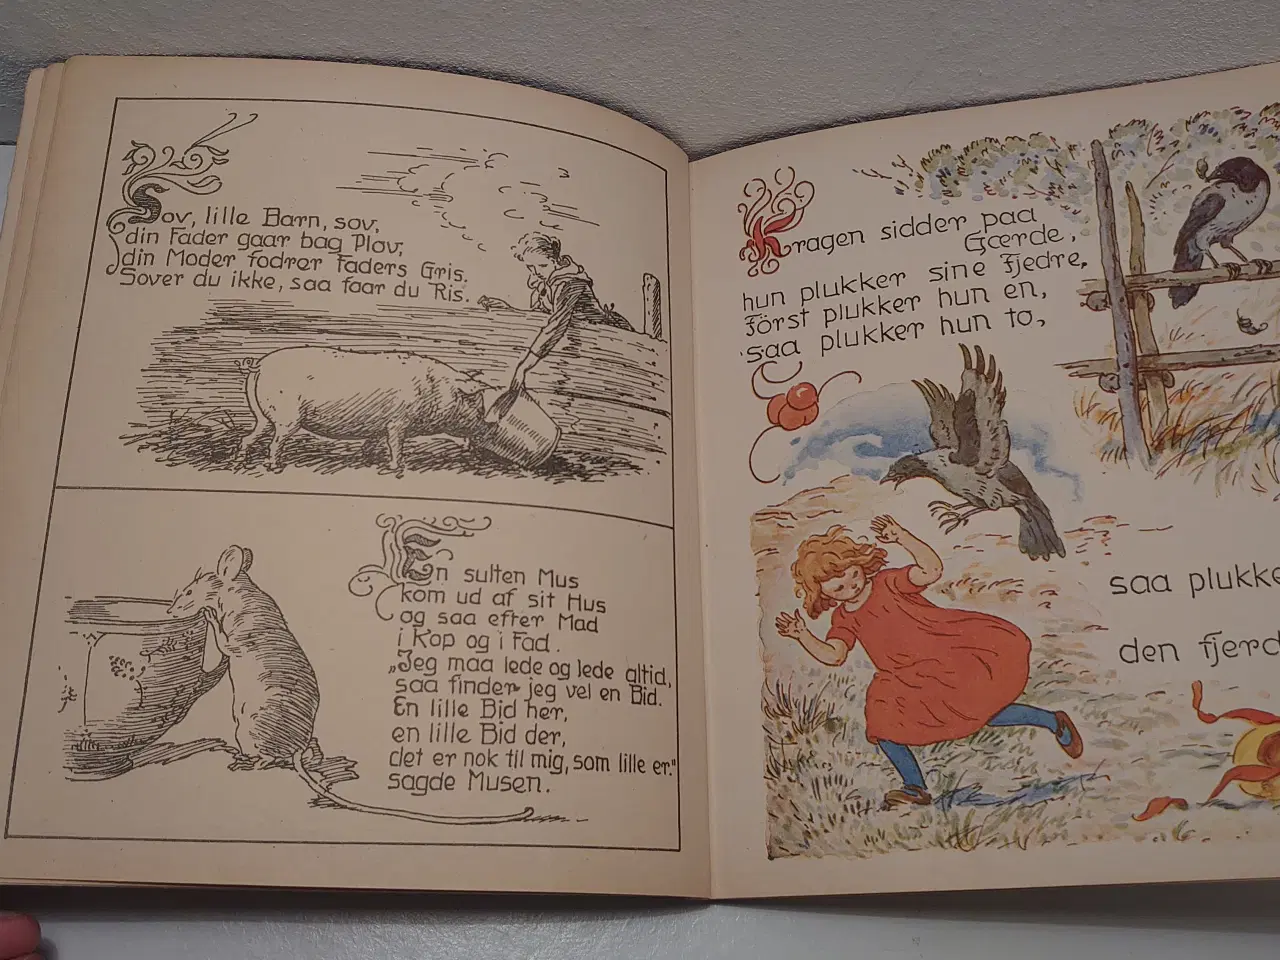 Sov, lille Barn, sov,
din Fader gaar bag Plov,
din Moder fodrer Faders Gris.
Sover du ikke, saa faar du Ris.
En sulten Mus
kom ud af sit Hus
og saa efter Mad
i Kop og i Fad.
„Jeg maa lede og lede altid,
saa finder jeg vel en Bid.
En lille Bid her,
en lille Bid der,
det er nok til mig, som lille er."
sagde Musen.
Kragen sidder paa
Gærde,
hun plukker sine Fjedre,
Först plukker hun en,
saa plukker hun to,
saa plukke
den fjerd